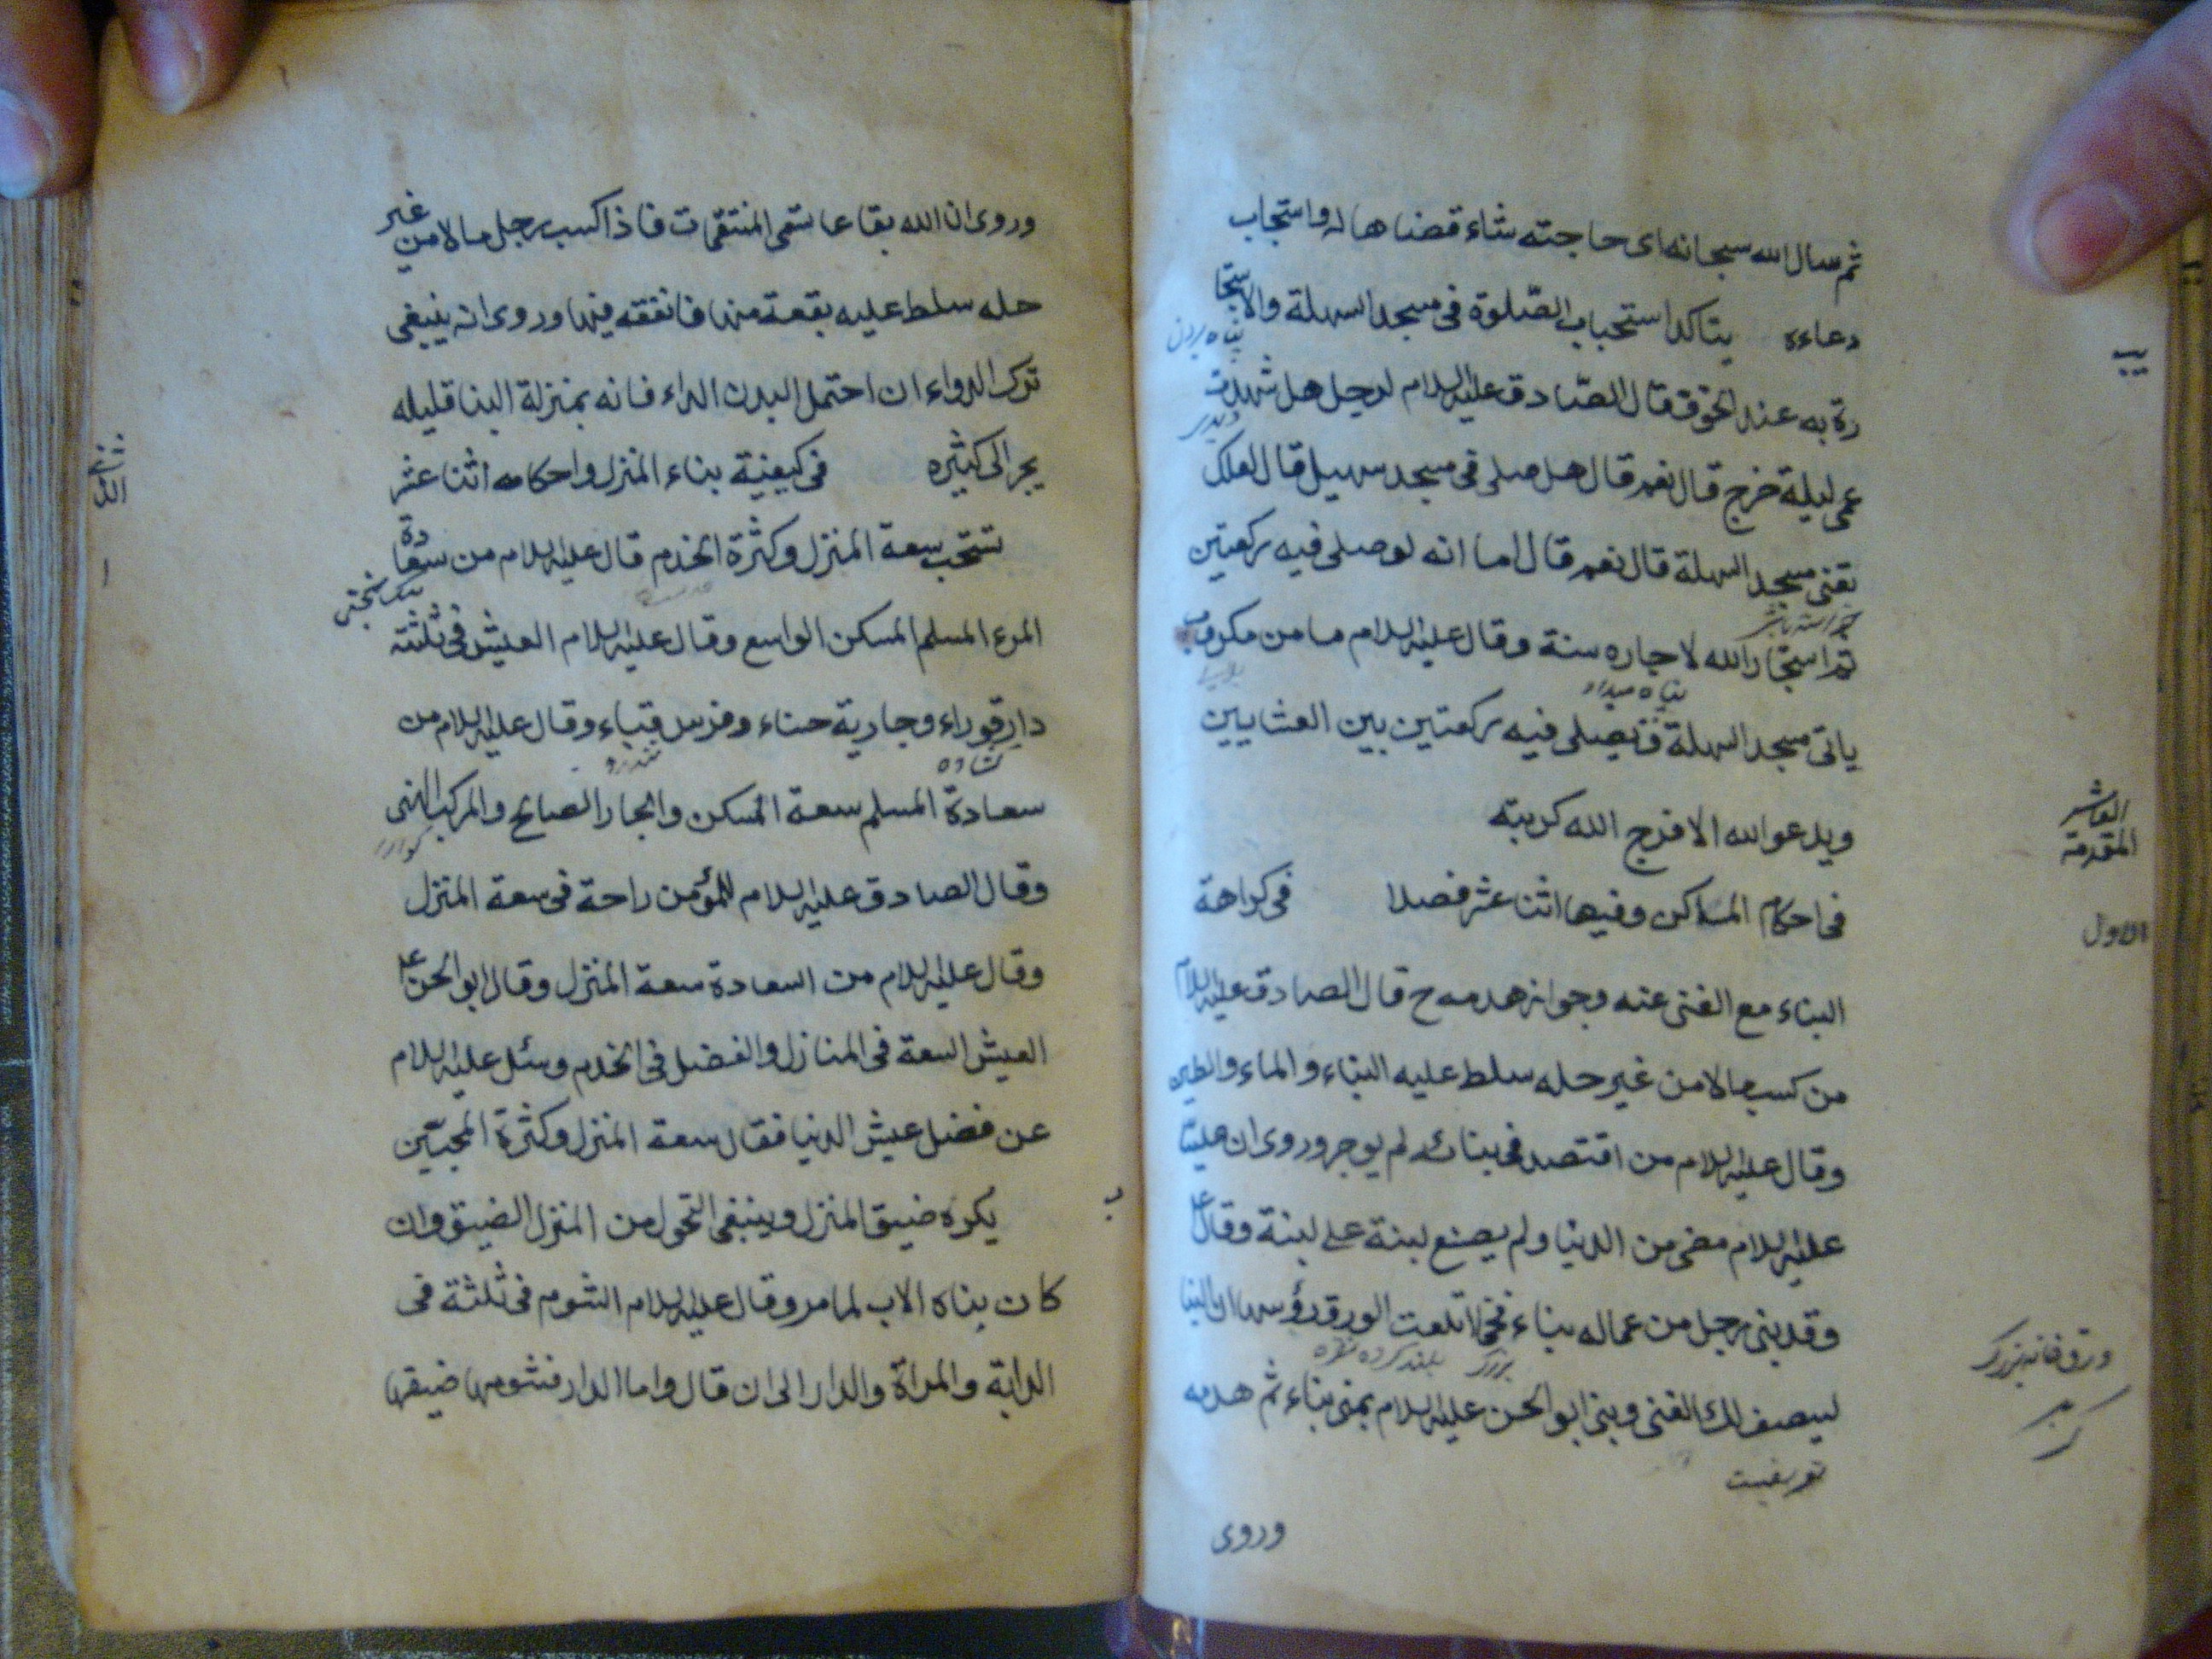 ثم سال الله سبحانه اى حاجته شاء قضاها له واستجاب
دعاءه يتاكد استحباب الصّلوة فى مسجد السهلة والاستجا
پناه بردن
رة به عند الخوف قال الصّادق عليه السلام لرجل هل شهدت
ديدى
عمى ليلة خرج قال نعم قال هل صلى فى مسجد سهيل قال لعلك
تعنى مسجد السهلة قال نعم قال اما انه لوصلى فيه ركعتين
ثم استجار الله لاجاره سنة وقال عليه السلام ما من مكروب
پناه ميداد
ياتى مسجد السهلة فيصلى فيه ركعتين بين العشايين
ويدعو الله الا فرج الله كربته
العاشر
المقدمة
فى احكام المساكن وفيها اثنا عشر فصلا فى كراهة
الاول
البناء مع الغنى عنه وجواز هدمه ح قال الصادق عليه السلام
من كسب مالا من غير حله سلط عليه البناء والماء والطين
وقال عليه السلام من اقتصد فى بنائه لم يوجر وروى ان عليّا
عليه السلام مضى من الدنيا ولم يصنع لبنة على لبنة وقال ع
وقد بنى رجل من عماله بناء فخما اتلعت الورق رؤسها ان البنا
بزرگ بلند كرده
ليصف لك الغنى وبنى ابو الحسن عليه السلام بمنى بناء ثم هدمه
وروى
وروى ان الله بقاعا تسمى المنتقمات فاذا كسب رجل مالا من غير
حله سلط عليه بقعة منها فانفقه فيها وروى انه ينبغى
ترك الدواء ان احتمل البدن الداء فانه بمنزلة البنا قليله
يجر الى كثيره فى كيفية بناء المنزل واحكامه اثنا عشر
الثانى
تستحب سعة المنزل وكثرة الخدم قال عليه السلام من سعادة
المرء المسلم المسكن الواسع وقال عليه السلام العيش فى ثلثة
دار قوراء وجارية حسناء وفرس قباء وقال عليه السلام من
گشاده
سعادة المسلم سعة المسكن والجار الصالح والمركب الهنى
وقال الصادق عليه السلام للمؤمن راحة فى سعة المنزل
وقال عليه السلام من السعادة سعة المنزل وقال ابو الحسن ع
العيش السعة فى المنازل والفضل فى الخدم وسئل عليه السلام
عن فضل عيش الدنيا فقال سعة المنزل وكثرة المحبّين
ب يكره ضيق المنزل وينبغى التحول من المنزل الضيق وان
كان بناه الاب لما مر وقال عليه السلام الشوم فى ثلثة فى
الدابة والمراة والدار الى ان قال واما الدار فشومها ضيقها